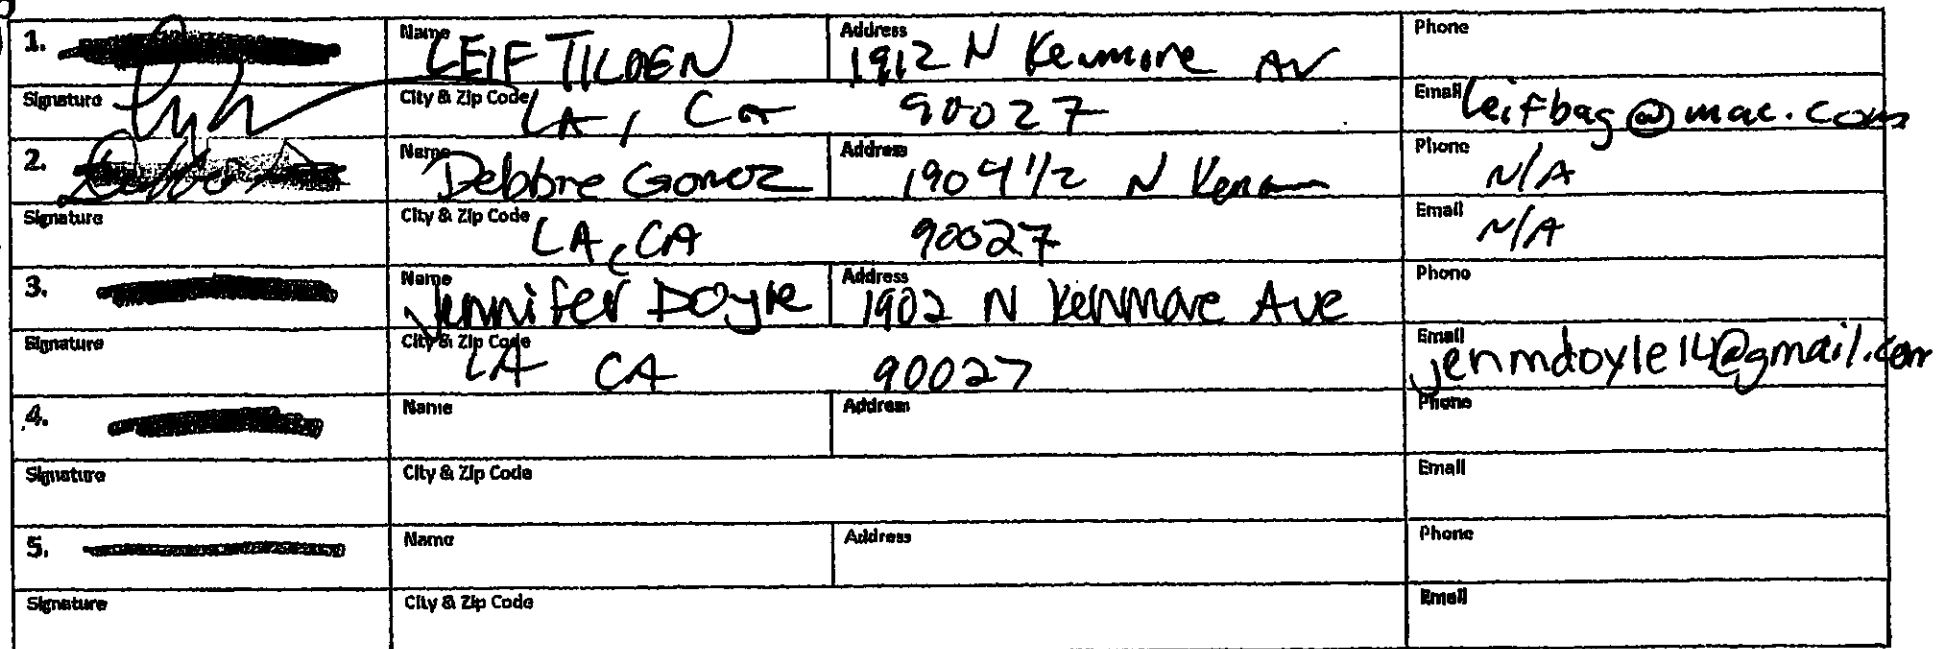 1. Name LEIF TILDEN Address 1912 N Kenmore Av Phone
Signature City & Zip Code LA, Ca 90027 Email leifbag@mac.com
2. Name Debbie Gomez Address 1904 1/2 N Phone N/A
Signature City & Zip Code LA, CA 90027 Email N/A
3. Name Jennifer Doyle Address 1902 N Kenmore Ave Phone
Signature City & Zip Code LA CA 90027 Email jenmdoyle14@gmail.com
4. Name Address Phone
Signature City & Zip Code Email
5. Name Address Phone
Signature City & Zip Code Email